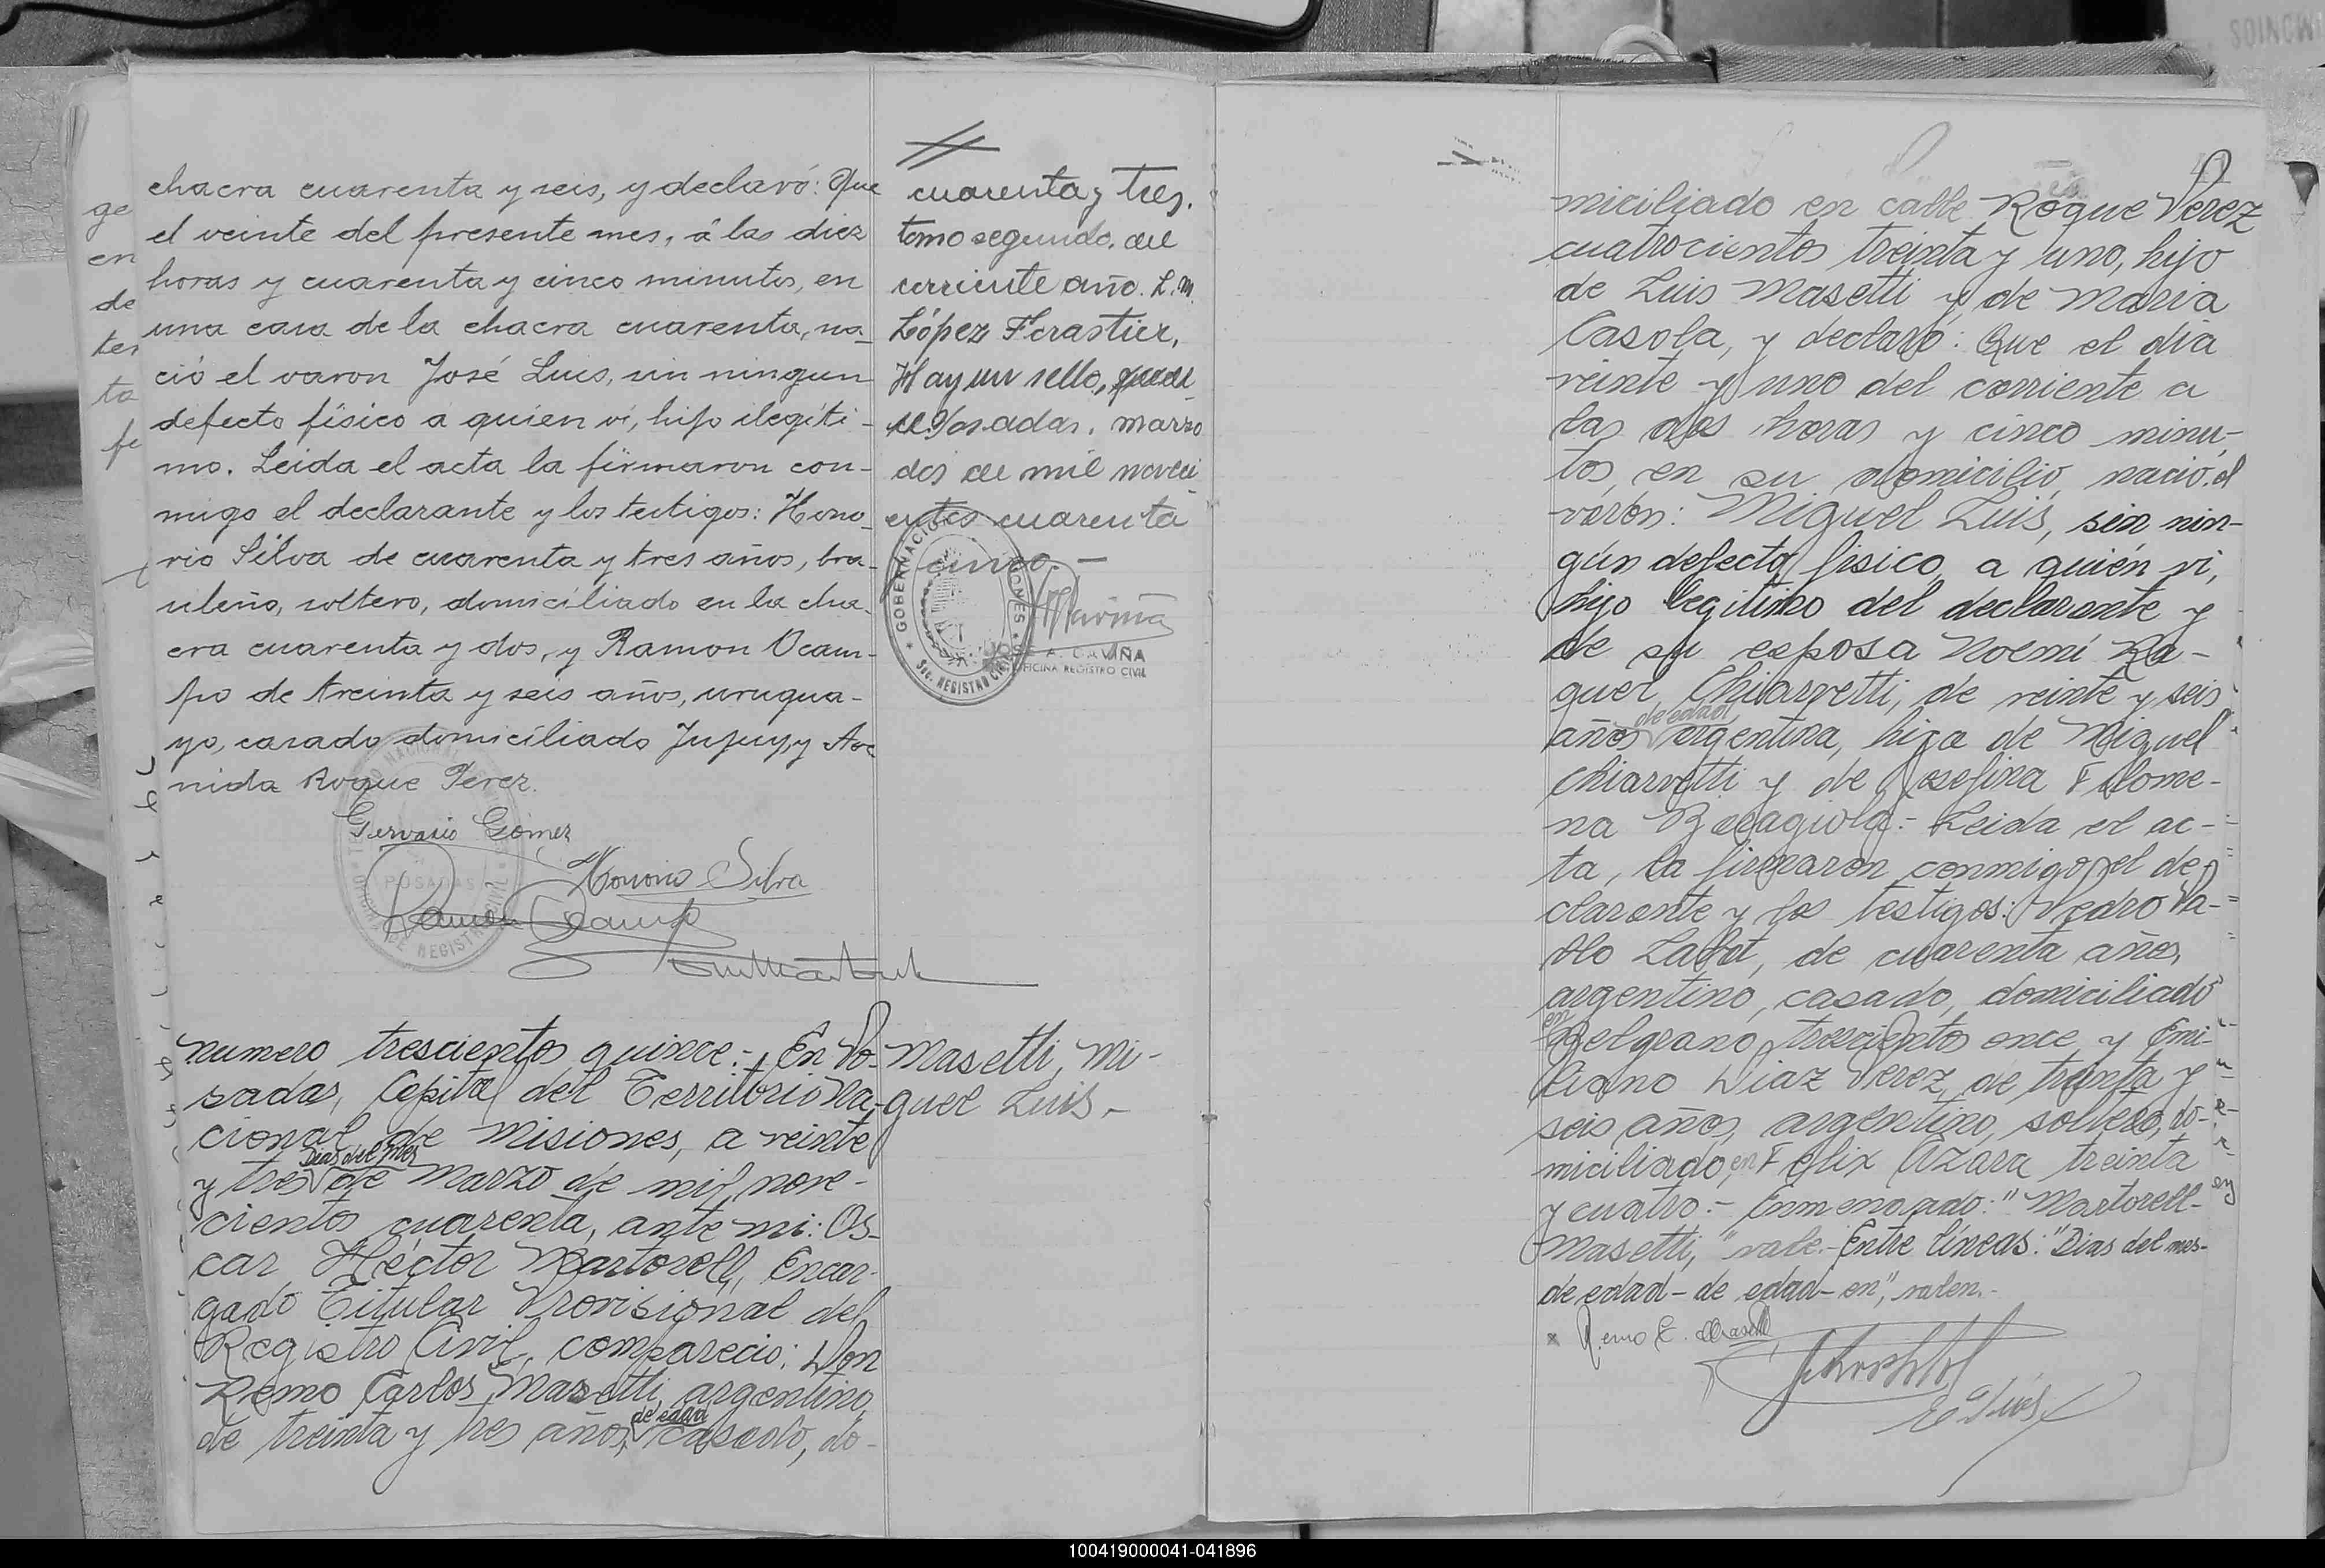 chacra cuarenta y seis, y declaró: Que
el veinte del presente mes, á las diez
horas y cuarenta y cinco minutos, en
una casa de la chacra cuarenta, na-
ció el varon José Luis, sin ningun
defecto físico a quien vi, hijo ilegíti-
mo. Leida el acta la firmaron con-
migo el declarante y los testigos: Hono-
rio Silva de cuarenta y tres años, bra-
sileño, soltero, domiciliado en la cha-
cra cuarenta y dos, y Ramon Ocam-
po de treinta y seis años, urugua-
yo, casado domiciliado Jujuy, y Ave
nida Roque Perez.
Gervasio Gómez
Honorio Silva
Ramon Ocampo
POSADAS
cuarenta y tres.
tomo segundo. del
corriente año. L. M.
López Forastier.
Hay un sello,
Posadas, marzo
dos de mil noveci
entos cuarenta
cinco.-
GOBERNACION MISIONES
SEC. REGISTRO CIVIL
A. GAVIÑA
OFICINA REGISTRO CIVIL
Numero trescientos quince:- En Po-
sadas, Capital del Territorio Na-
cional de Misiones, a veinte
Dias del mes
y tres de Marzo de mil nove-
cientos cuarenta, ante mi: Os-
car Héctor Martorell, Encar-
gado Titular Provisional del
Registro Civil, comparecio: Don
Remo Carlos Masetti, argentino,
de edad
de treinta y tres años, casado, do-
Masetti, Mi-
guel Luis.-
miciliado en calle Roque Perez
cuatrocientos treinta y uno, hijo
de Luis Masetti y de Maria
Casola, y declaró: Que el dia
veinte y uno del corriente a
las dos horas y cinco minu-
tos, en su domicilio, nació el
varón: Miguel Luis, sin nin-
gún defecto fisico, a quién vi,
hijo legitimo del declarante y
de su esposa Noemi Ra-
quel Chiarvetti, de veinte y seis
de edad
años argentina, hija de Miguel
Chiarvetti y de Josefina Filome-
na Baragiola.- Leida el ac-
ta, la firmaron conmigo, el de-
clarante y los testigos: Pedro Pa-
blo Labat, de cuarenta años,
argentino, casado, domiciliado
en
Belgrano trescientos once y Emi-
liano Diaz Perez, de treinta y
seis años, argentino, soltero, do-
miciliado, en Felix Azara treinta
y cuatro.- Enmendado: "Martorell-
Masetti," vale.- Entre líneas: "Dias del mes-
de edad - de edad - en", valen.-
x Remo C. Masetti
100419000041-041896